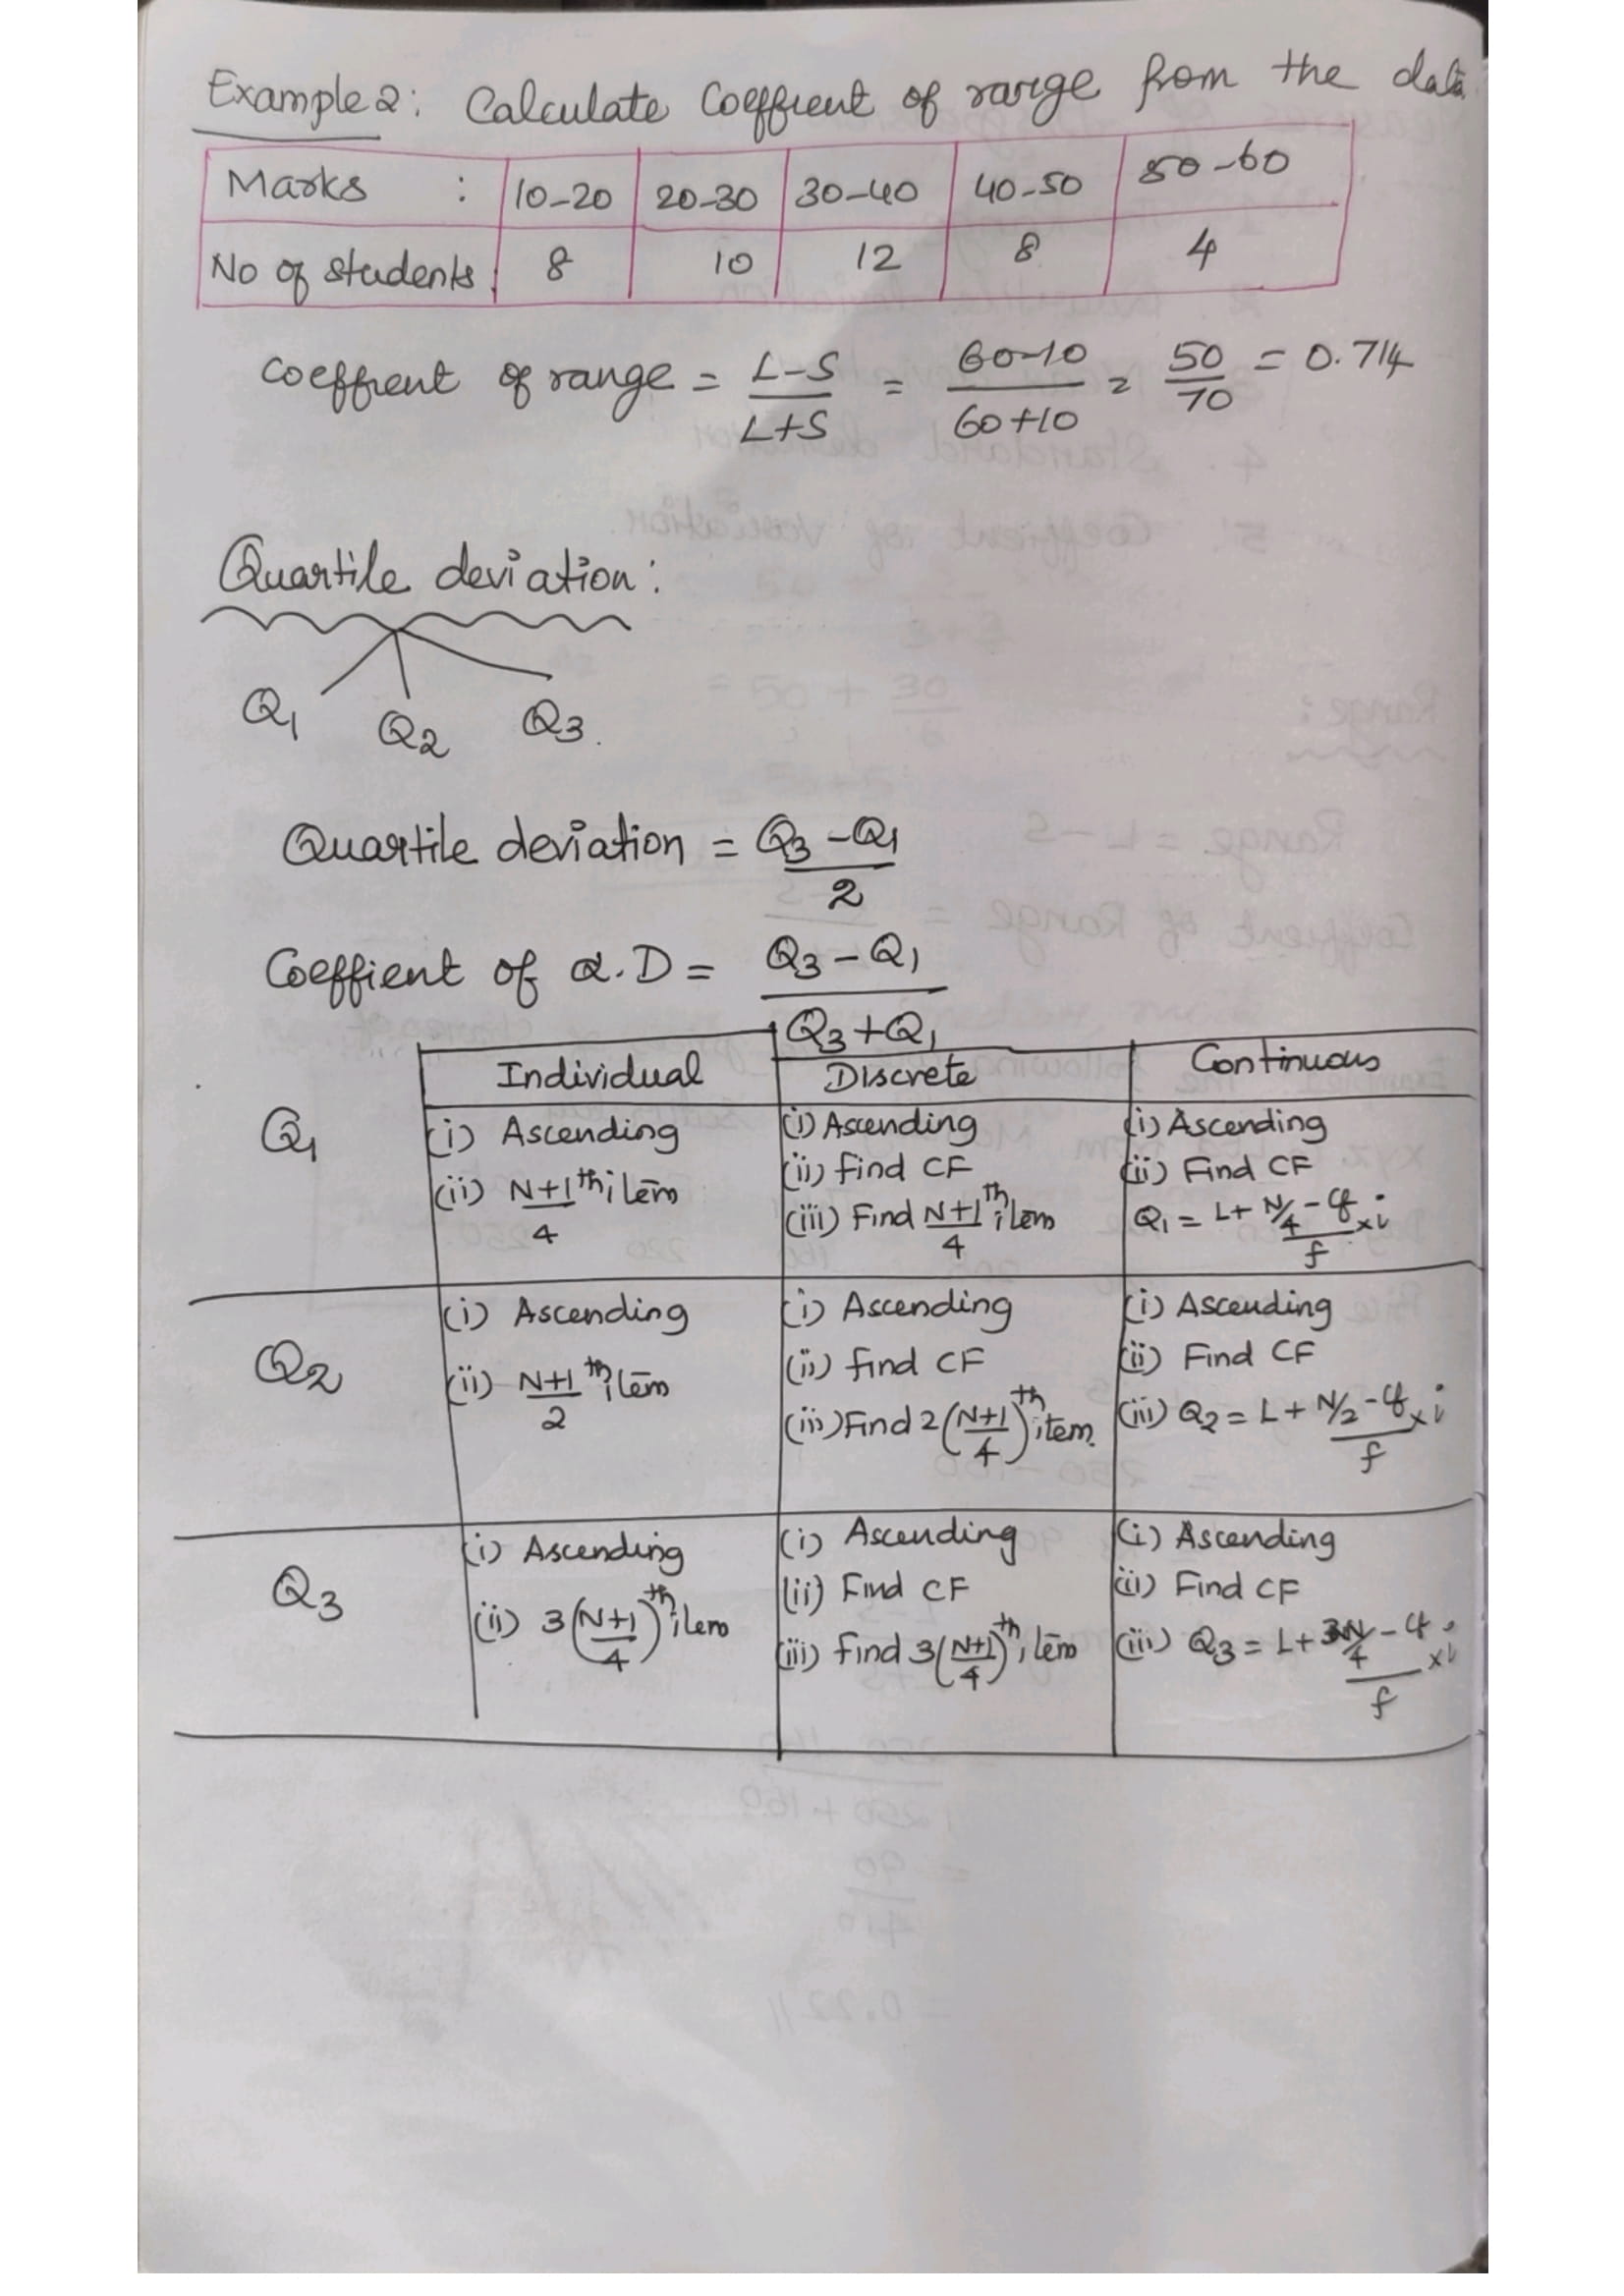 Example 2: Calculate Coeffient of range from the data
Marks : 10-20 20-30 30-40 40-50 50-60
No of students 8 10 12 8 4
Coeffient of range = L-S / L+S = 60-10 / 60+10 = 50/70 = 0.714
Quartile deviation:
Q1 Q2 Q3.
Quartile deviation = Q3-Q1 / 2
Coeffient of Q.D = Q3-Q1 / Q3+Q1
Individual Discrete Continuous
Q1
(i) Ascending
(ii) N+1/4 th item
(i) Ascending
(ii) find CF
(iii) Find N+1/4 th item
(i) Ascending
(ii) Find CF
Q1 = L + N/4 - cf / f × i
Q2
(i) Ascending
(ii) N+1/2 th item
(i) Ascending
(ii) find CF
(iii) Find 2(N+1/4)th item.
(i) Ascending
(ii) Find CF
(iii) Q2 = L + N/2 - cf / f × i
Q3
(i) Ascending
(ii) 3(N+1/4)th item
(i) Ascending
(ii) Find CF
(iii) find 3(N+1/4)th item
(i) Ascending
(ii) Find CF
(iii) Q3 = L + 3N/4 - cf / f × i